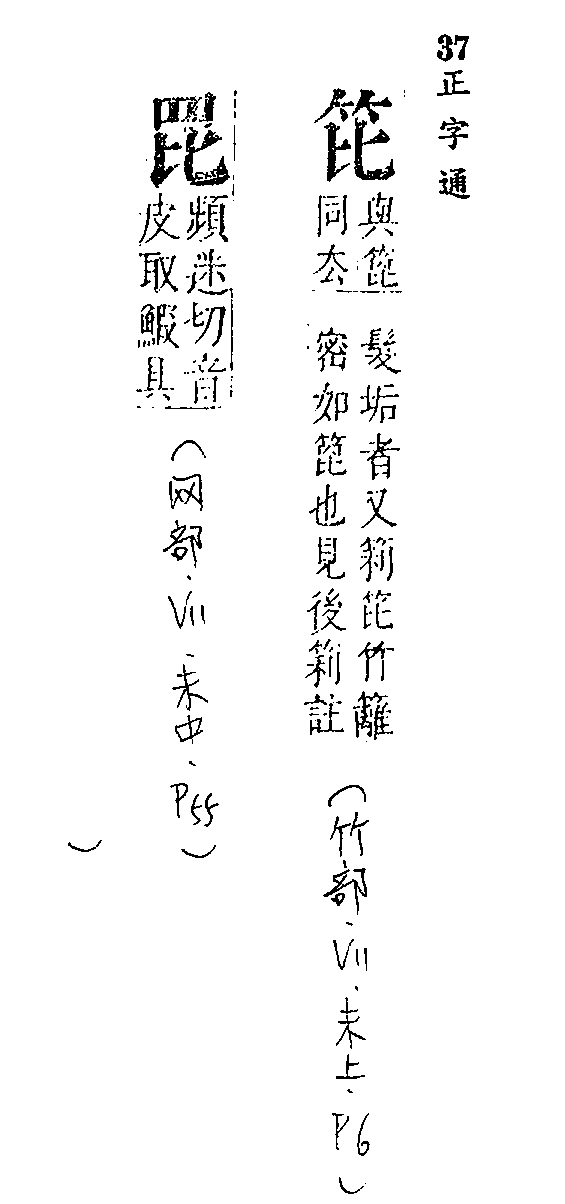 37正字通
笓
與箆
同厺
髮垢者又簖笓竹籬
密如箆也見後簖註
(竹部.VII.未上.P6)
頻迷切音
皮取鰕具
(网部.VII.未中.P55)
)